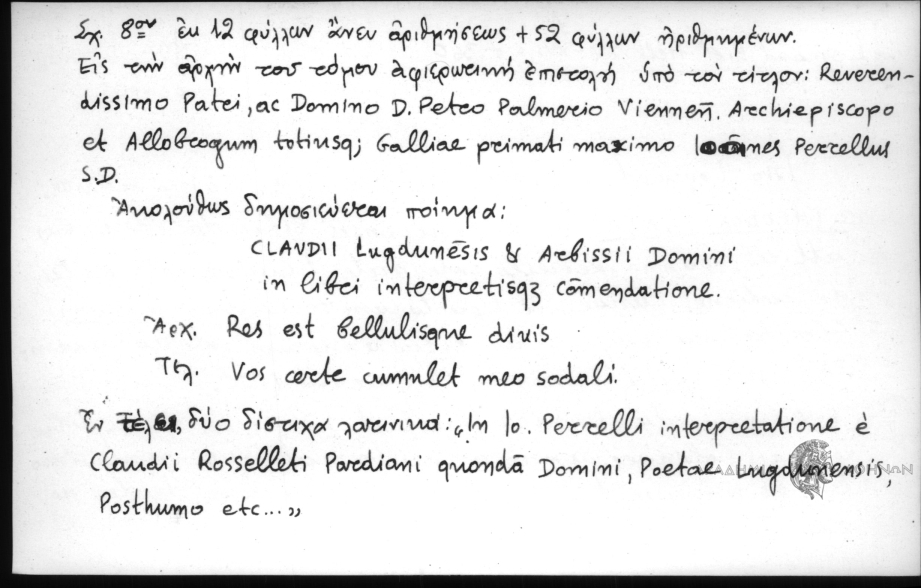 Σχ. 8ον ἐκ 12 φύλλων ἄνευ ἀριθμήσεως + 52 φύλλων ἠριθμημένων.
Εἰς τὴν ἀρχὴν τοῦ τόμου ἀφιερωτικὴ ἐπιστολὴ ὑπὸ τὸν τίτλον: Reveren-
dissimo Patri, ac Domino D. Petro Palmerio Vienneñ. Archiepiscopo
et Allobrogum totiusq; Galliae primati maximo Ioānes Perrellus
S.D.
Ἀκολούθως δημοσιεύεται ποίημα:
CLAUDII Lugdunēsis & Arbissii Domini
in libri interpretisqʒ cōmendatione.
Ἀρχ. Res est bellulisque divis
Τελ. Vos certe cumulet meo sodali.
Ἐν τέλει, δύο δίστιχα λατινικά: „In Io. Perrelli interpretatione è
Claudii Rosselleti Pardiani quondā Domini, Poetae Lugdunensis,
Posthumo etc...„